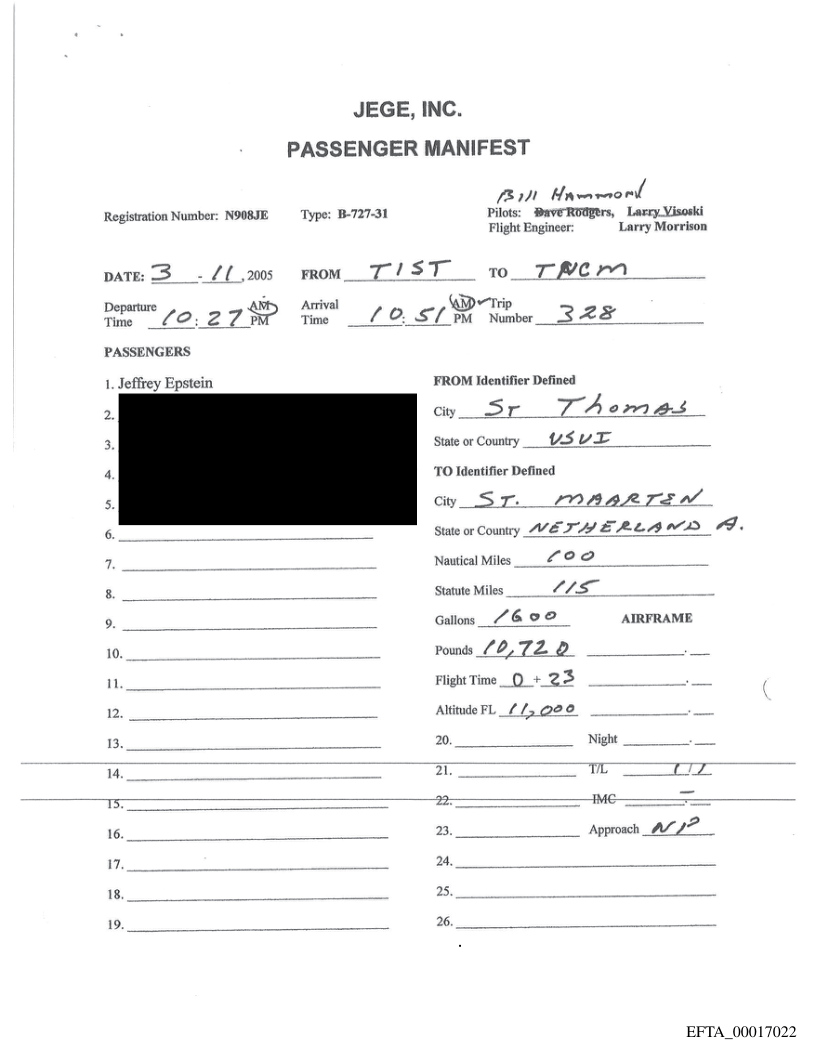 JEGE, INC.
PASSENGER MANIFEST
Bill Hammond
Registration Number: N908JE Type: B-727-31 Pilots: Dave Rodgers, Larry Visoski
Flight Engineer: Larry Morrison
DATE: 3 - 11, 2005 FROM TIST TO TNCM
Departure Time 10:27 AM PM Arrival Time 10:51 AM PM Trip Number 328
PASSENGERS
1. Jeffrey Epstein
2.
3.
4.
5.
6.
7.
8.
9.
10.
11.
12.
13.
14.
15.
16.
17.
18.
19.
FROM Identifier Defined
City ST Thomas
State or Country USVI
TO Identifier Defined
City ST. MAARTEN
State or Country NETHERLAND A.
Nautical Miles 100
Statute Miles 115
Gallons 1600 AIRFRAME
Pounds 10,720
Flight Time 0 + 23
Altitude FL 11,000
20. Night
21. T/L 1/1
22. IMC -
23. Approach NP
24.
25.
26.
EFTA_00017022